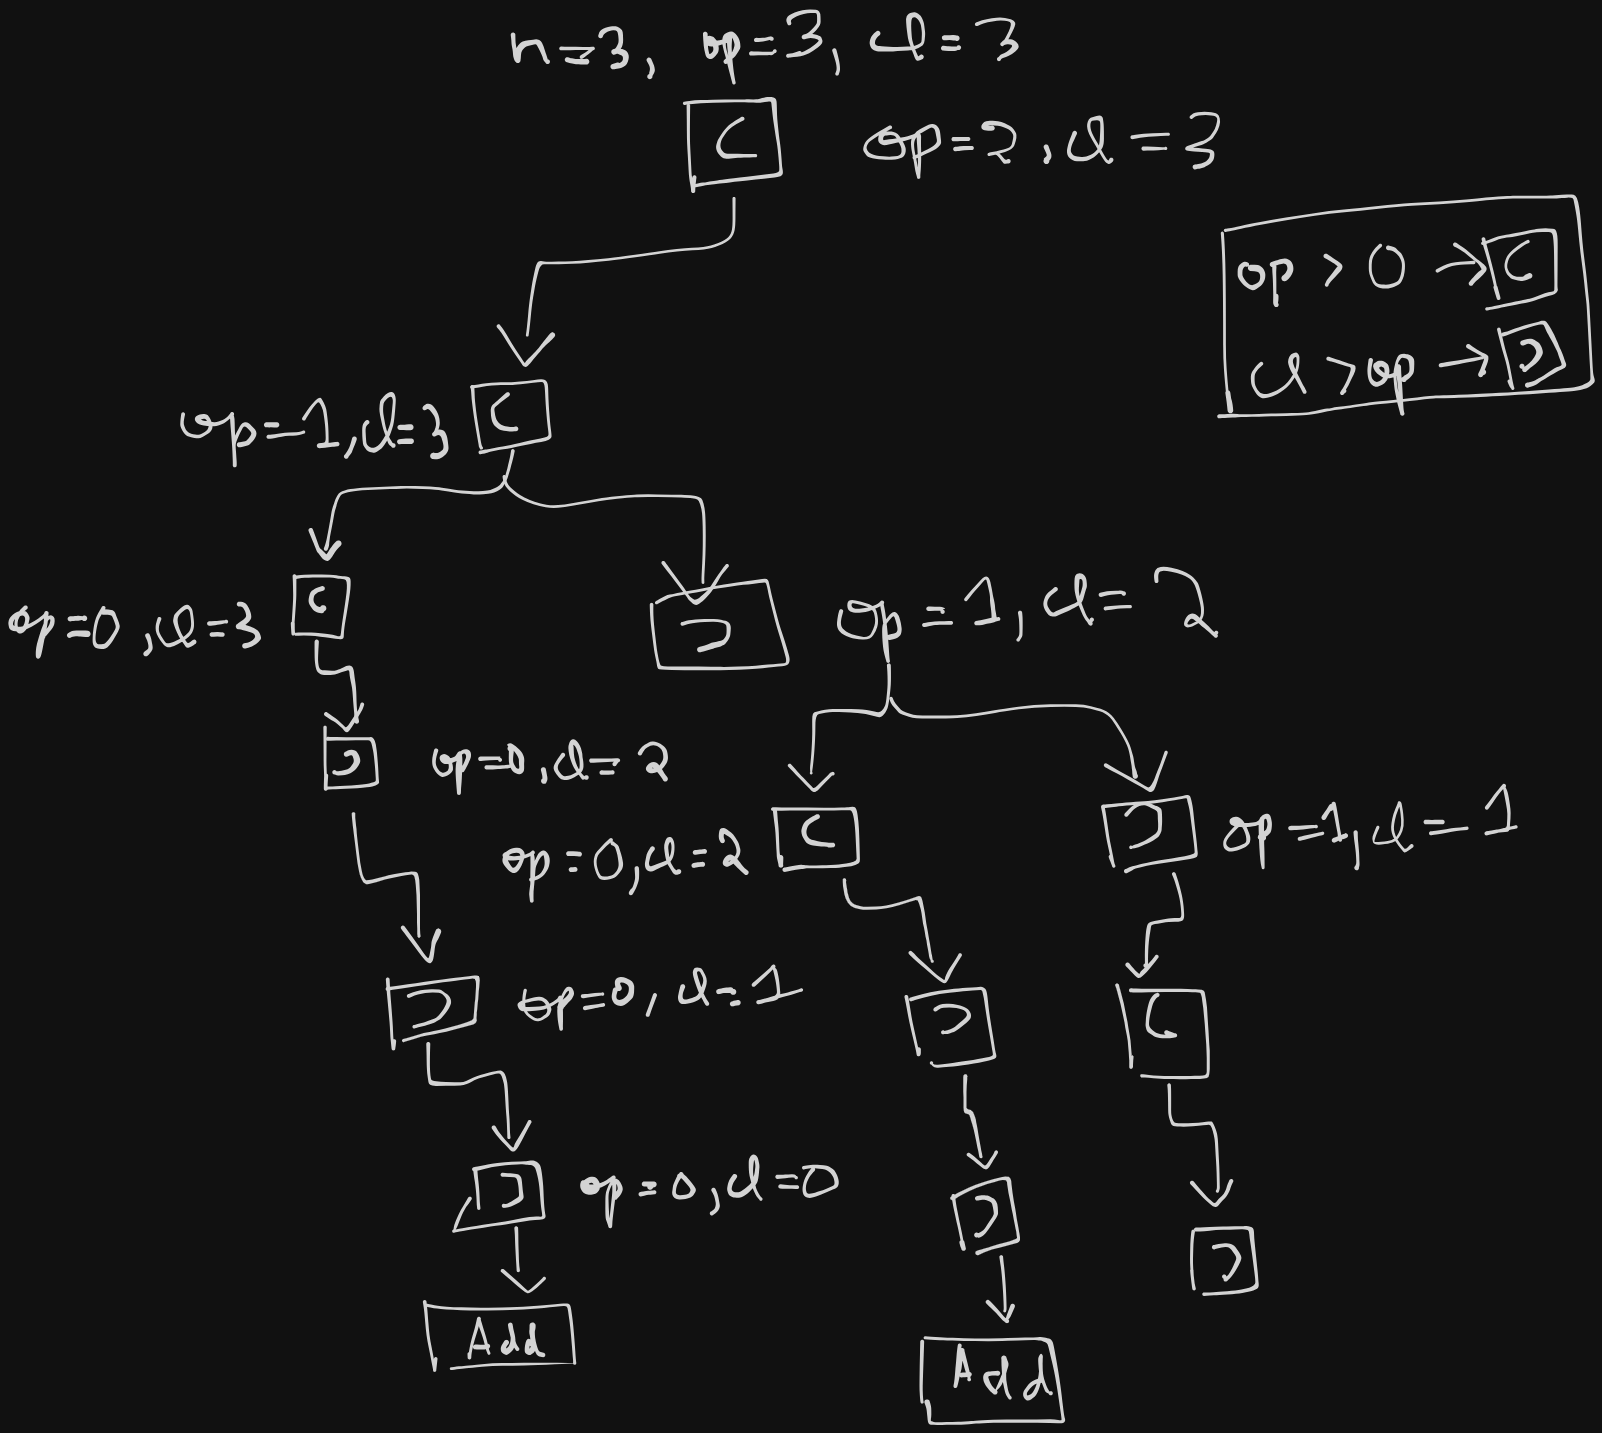 n=3, op=3, cl=3
C op=2, cl=3
op > 0 → C
cl > op → Ɔ
op=1, cl=3 C
op=0, cl=3 C
Ɔ op=1, cl=2
Ɔ op=0, cl=2
op=0, cl=2 C
Ɔ op=1, cl=1
Ɔ op=0, cl=1
Ɔ
C
Ɔ op=0, cl=0
Ɔ
Ɔ
Add
Add